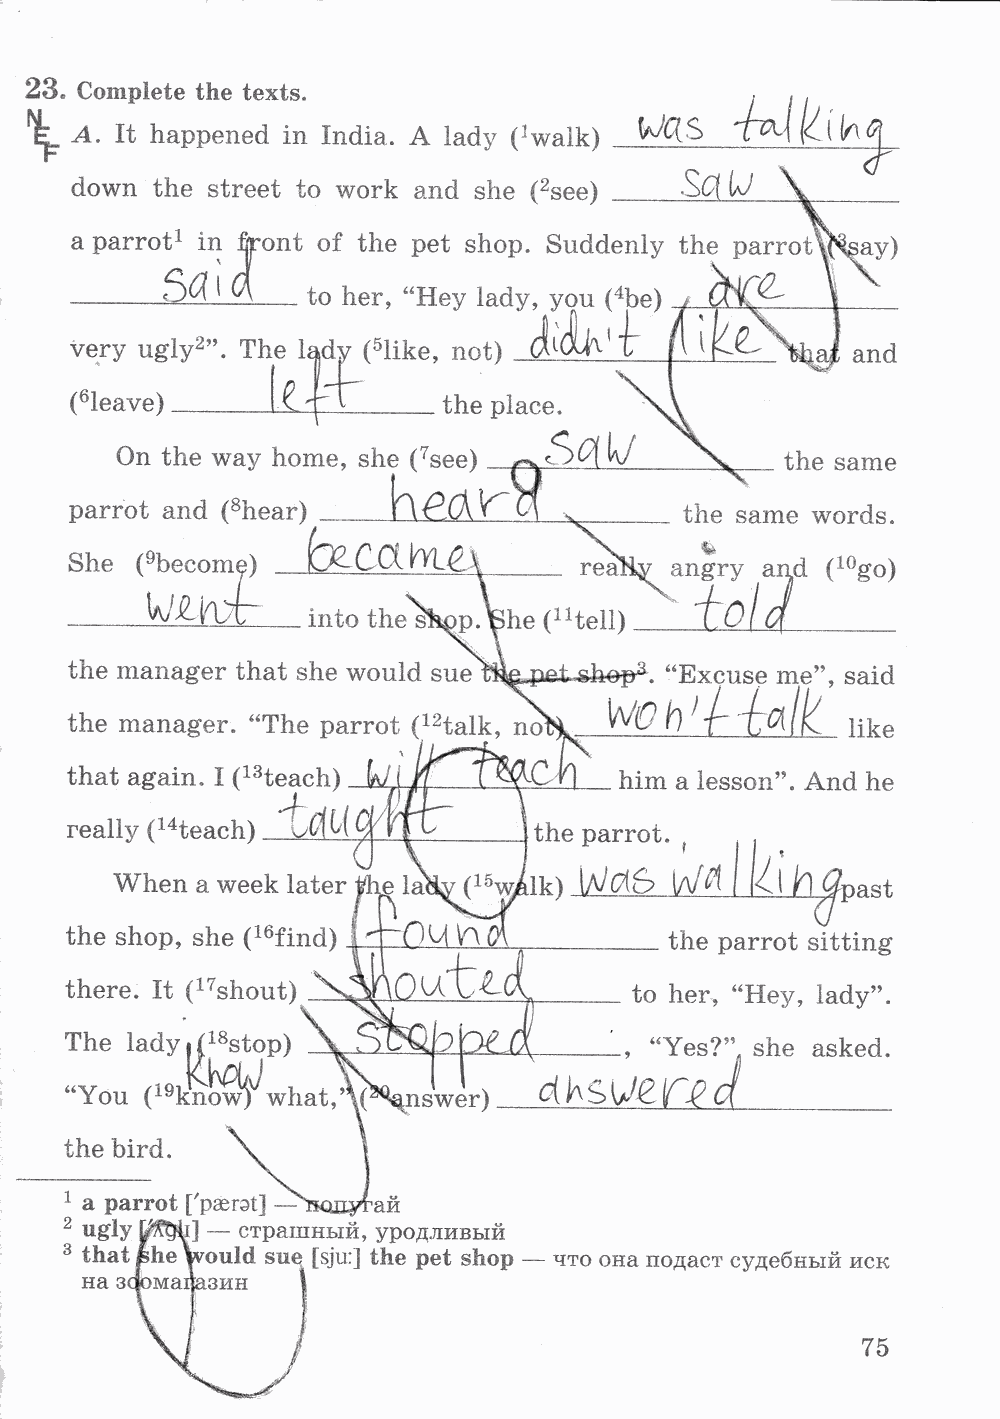 23. Complete the texts.
NEF A. It happened in India. A lady (¹walk) was talking
down the street to work and she (²see) saw
a parrot¹ in front of the pet shop. Suddenly the parrot (³say)
said to her, “Hey lady, you (⁴be) are
very ugly²”. The lady (⁵like, not) didn't like that and
(⁶leave) left the place.
On the way home, she (⁷see) saw the same
parrot and (⁸hear) heard the same words.
She (⁹become) became really angry and (¹⁰go)
went into the shop. She (¹¹tell) told
the manager that she would sue the pet shop³. “Excuse me”, said
the manager. “The parrot (¹²talk, not) won't talk like
that again. I (¹³teach) will teach him a lesson”. And he
really (¹⁴teach) taught the parrot.
When a week later the lady (¹⁵walk) was walking past
the shop, she (¹⁶find) found the parrot sitting
there. It (¹⁷shout) shouted to her, “Hey, lady”.
The lady (¹⁸stop) stopped, “Yes?”, she asked.
know
“You (¹⁹know) what,” (²⁰answer) answered
the bird.
¹ a parrot [ˈpærət] — попугай
² ugly [ˈʌglɪ] — страшный, уродливый
³ that she would sue [sju:] the pet shop — что она подаст судебный иск
на зоомагазин
75